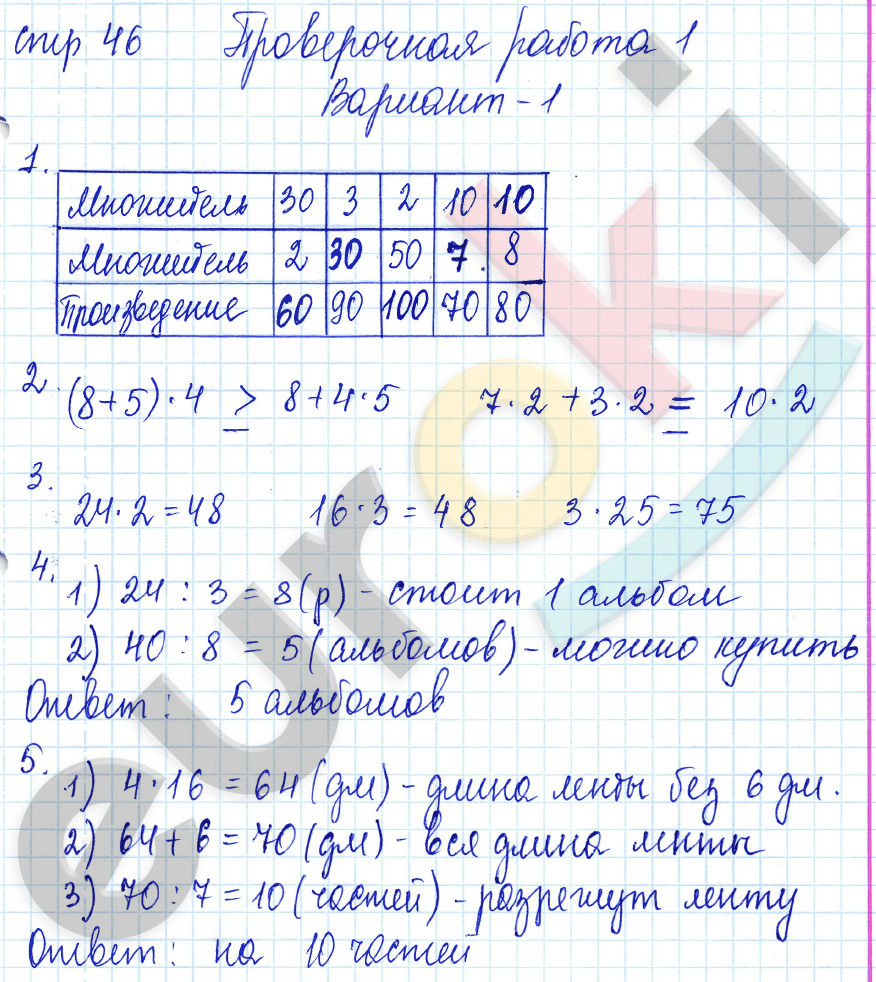 стр 46 Проверочная работа 1
Вариант - 1
1.
Множитель 30 3 2 10 10
Множитель 2 30 50 7 8
Произведение 60 90 100 70 80
2. (8+5)·4 > 8+4·5 7·2+3·2 = 10·2
3.
24·2=48 16·3=48 3·25=75
4.
1) 24 : 3 = 8 (р) - стоит 1 альбом
2) 40 : 8 = 5 (альбомов) - можно купить
Ответ: 5 альбомов
5.
1) 4·16 = 64 (дм) - длина ленты без 6 дм.
2) 64 + 6 = 70 (дм) - вся длина ленты
3) 70 : 7 = 10 (частей) - разрежут ленту
Ответ: на 10 частей
euroki